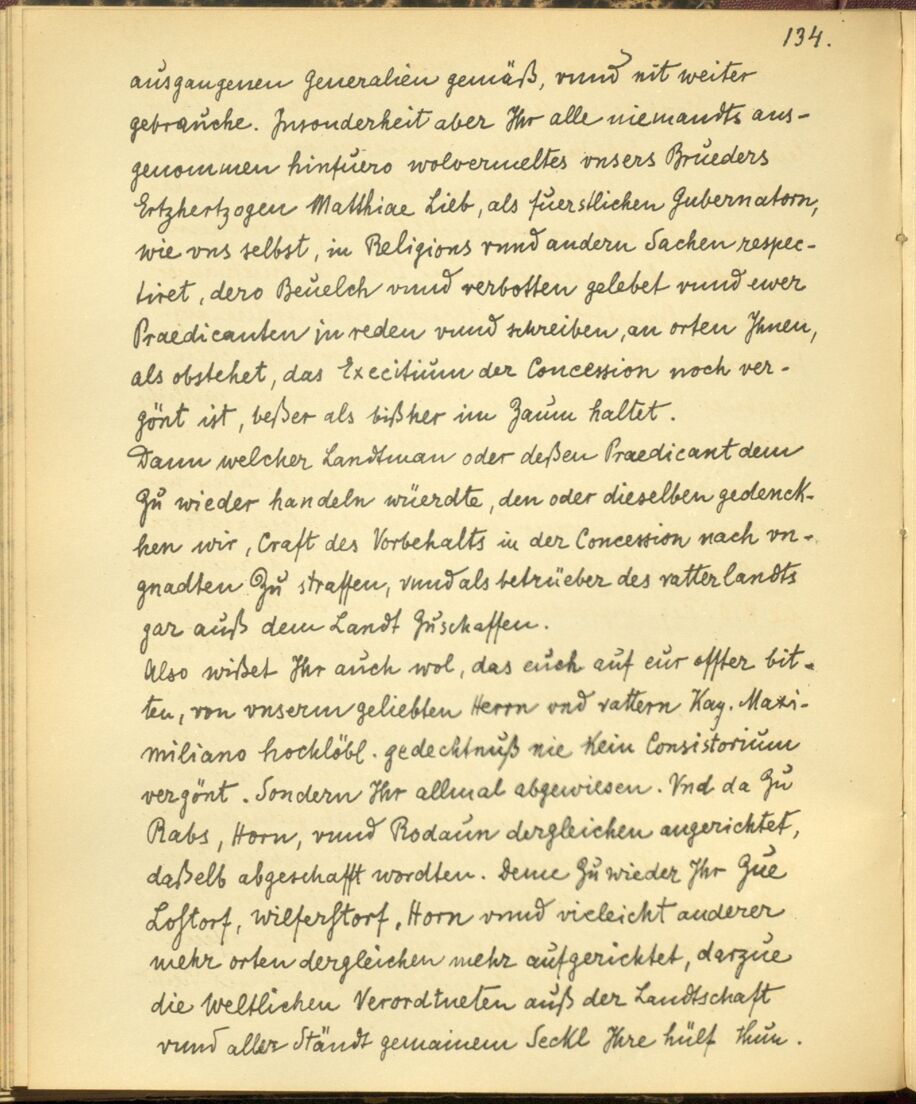 134.
ausgangenen Generalien gemäß, vnnd nit weiter
gebrauche. Insonderheit aber Ihr alle niemandts aus-
genommen hinfuero wolvermeltes vnsers Brueders
Ertzhertzogen Matthiae Lieb, als fuerstlichen Gubernatorn,
wie vns selbst, in Religions vnnd andern Sachen respec-
tiret, dero Beuelch vnnd verbotten gelebet vnnd ewer
Praedicanten in reden vnnd schreiben, an orten Ihnen,
als obstehet, das Execitium der Concession noch ver-
gönt ist, beßer als bißher im Zaum haltet.
Dann welcher Landtman oder deßen Praedicant dem
Zu wieder handeln wüerdte, den oder dieselben gedenck-
hen wir, Craft des Vorbehalts in der Concession nach vn-
gnadten Zu straffen, vnnd als betrüeber des vatterlandts
gar auß dem Landt Zuschaffen.
Also wißet Ihr auch wol, das euch auf eur offter bit-
ten, von vnserm geliebten Herrn vnd vattern Kay. Maxi-
miliano hochlöbl. gedechtnuß nie Kein Consistorium
vergönt. Sondern Ihr allmal abgewiesen. Vnd da Zu
Rabs, Horn, vnnd Rodaun dergleichen angerichtet,
daßelb abgeschafft wordten. Deme Zu wieder Ihr Zue
Loßtorf, Wilferßtorf, Horn vnnd vieleicht anderer
mehr orten dergleichen mehr aufgerichtet, darzue
die Weltlichen Verordtneten auß der Landtschaft
vnnd aller Ständt gemainem Seckl Ihre hülf thun.